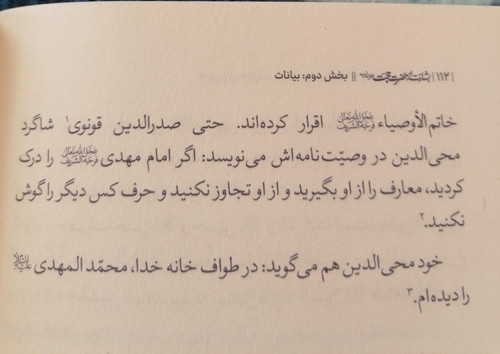 |۱۱۲| حضرت حجت || بخش دوم: بیانات
خاتم‌الأوصیاء اقرار کرده‌اند. حتی صدرالدین قونوی۱ شاگرد
محی‌الدین در وصیّت‌نامه‌اش می‌نویسد: اگر امام مهدی را درک
کردید، معارف را از او بگیرید و از او تجاوز نکنید و حرف کس دیگر را گوش
نکنید.۲
خود محی‌الدین هم می‌گوید: در طواف خانه خدا، محمّد المهدی
را دیده‌ام.۳